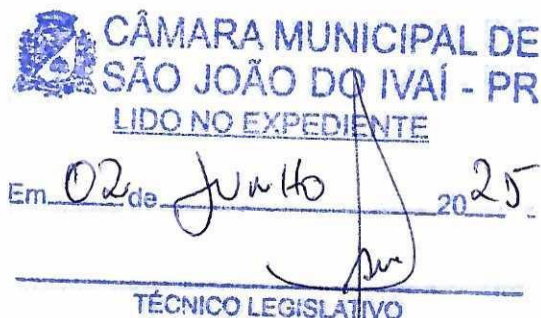 CÂMARA MUNICIPAL DE
SÃO JOÃO DO IVAÍ - PR
LIDO NO EXPEDIENTE
Em 02 de JUNHO 2025
TÉCNICO LEGISLATIVO